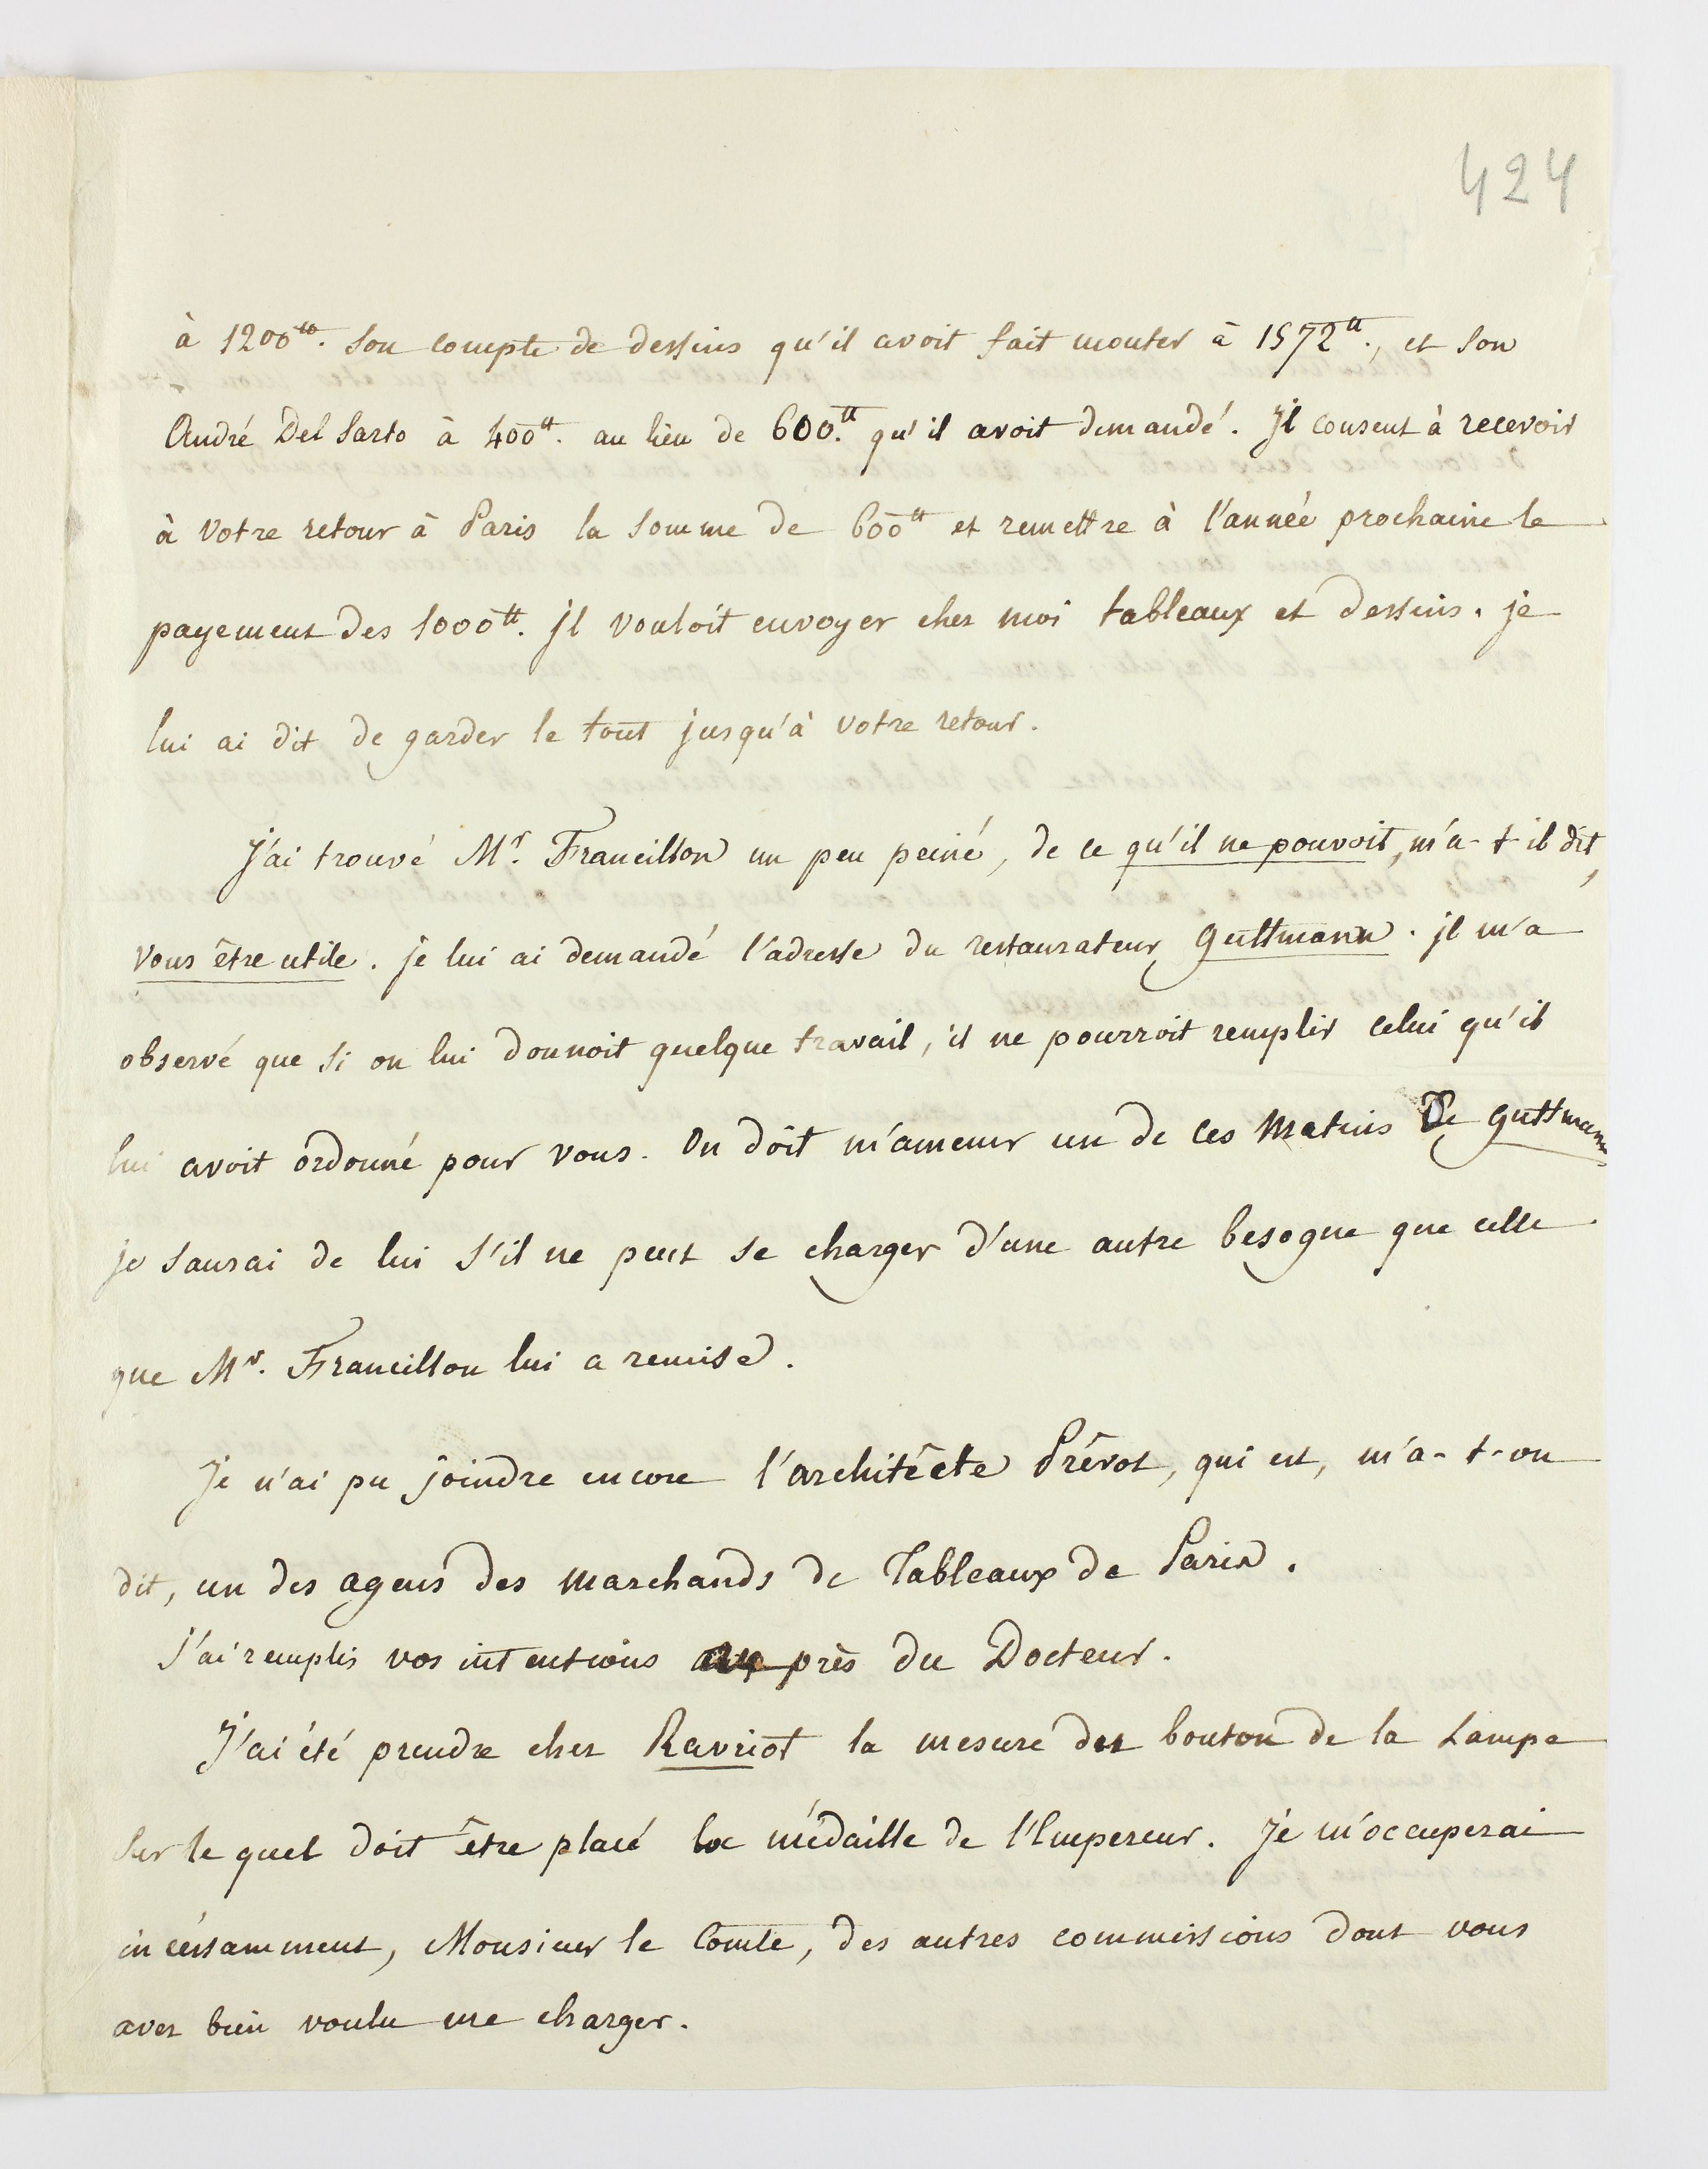 424
à 1200tt. son compte de dessins qu'il avoit fait monter à 1572tt., et son
André Del Sarto à 400tt. au lieu de 600.tt qu'il avoit demandé. Il consent à recevoir
à votre retour à Paris la somme de 600tt et remettre à l'année prochaine le
payement des 1000tt. Il vouloit envoyer chez moi tableaux et dessins. je
lui ai dit de garder le tout jusqu'à votre retour.
J'ai trouvé Mr. Francillon un peu peiné, de ce qu'il ne pouvoit, m'a-t-il dit,
vous être utile. je lui ai demandé l'adresse du restaurateur Guttmann. il m'a
observé que si on lui donnoit quelque travail, il ne pourroit remplir celui qu'il
lui avoit ordonné pour vous. On doit m'amener un de ces matins De Guttmann
je saurai de lui s'il ne peut se charger d'une autre besogne que celle
que Mr. Francillon lui a remise.
Je n'ai pu joindre encore l'architécte Prévot, qui est, m'a-t-on
dit, un des agens des marchands de Tableaux de Paris.
J'ai remplis vos intentions auprès du Docteur.
J'ai été prendre chez Ravriot la mesure du bouton de la Lampe
sur le quel doit être placé la médaille de l'Empereur. Je m'occuperai
incéssamment, Monsieur le Comte, des autres commissions dont vous
avez bien voulu me charger.